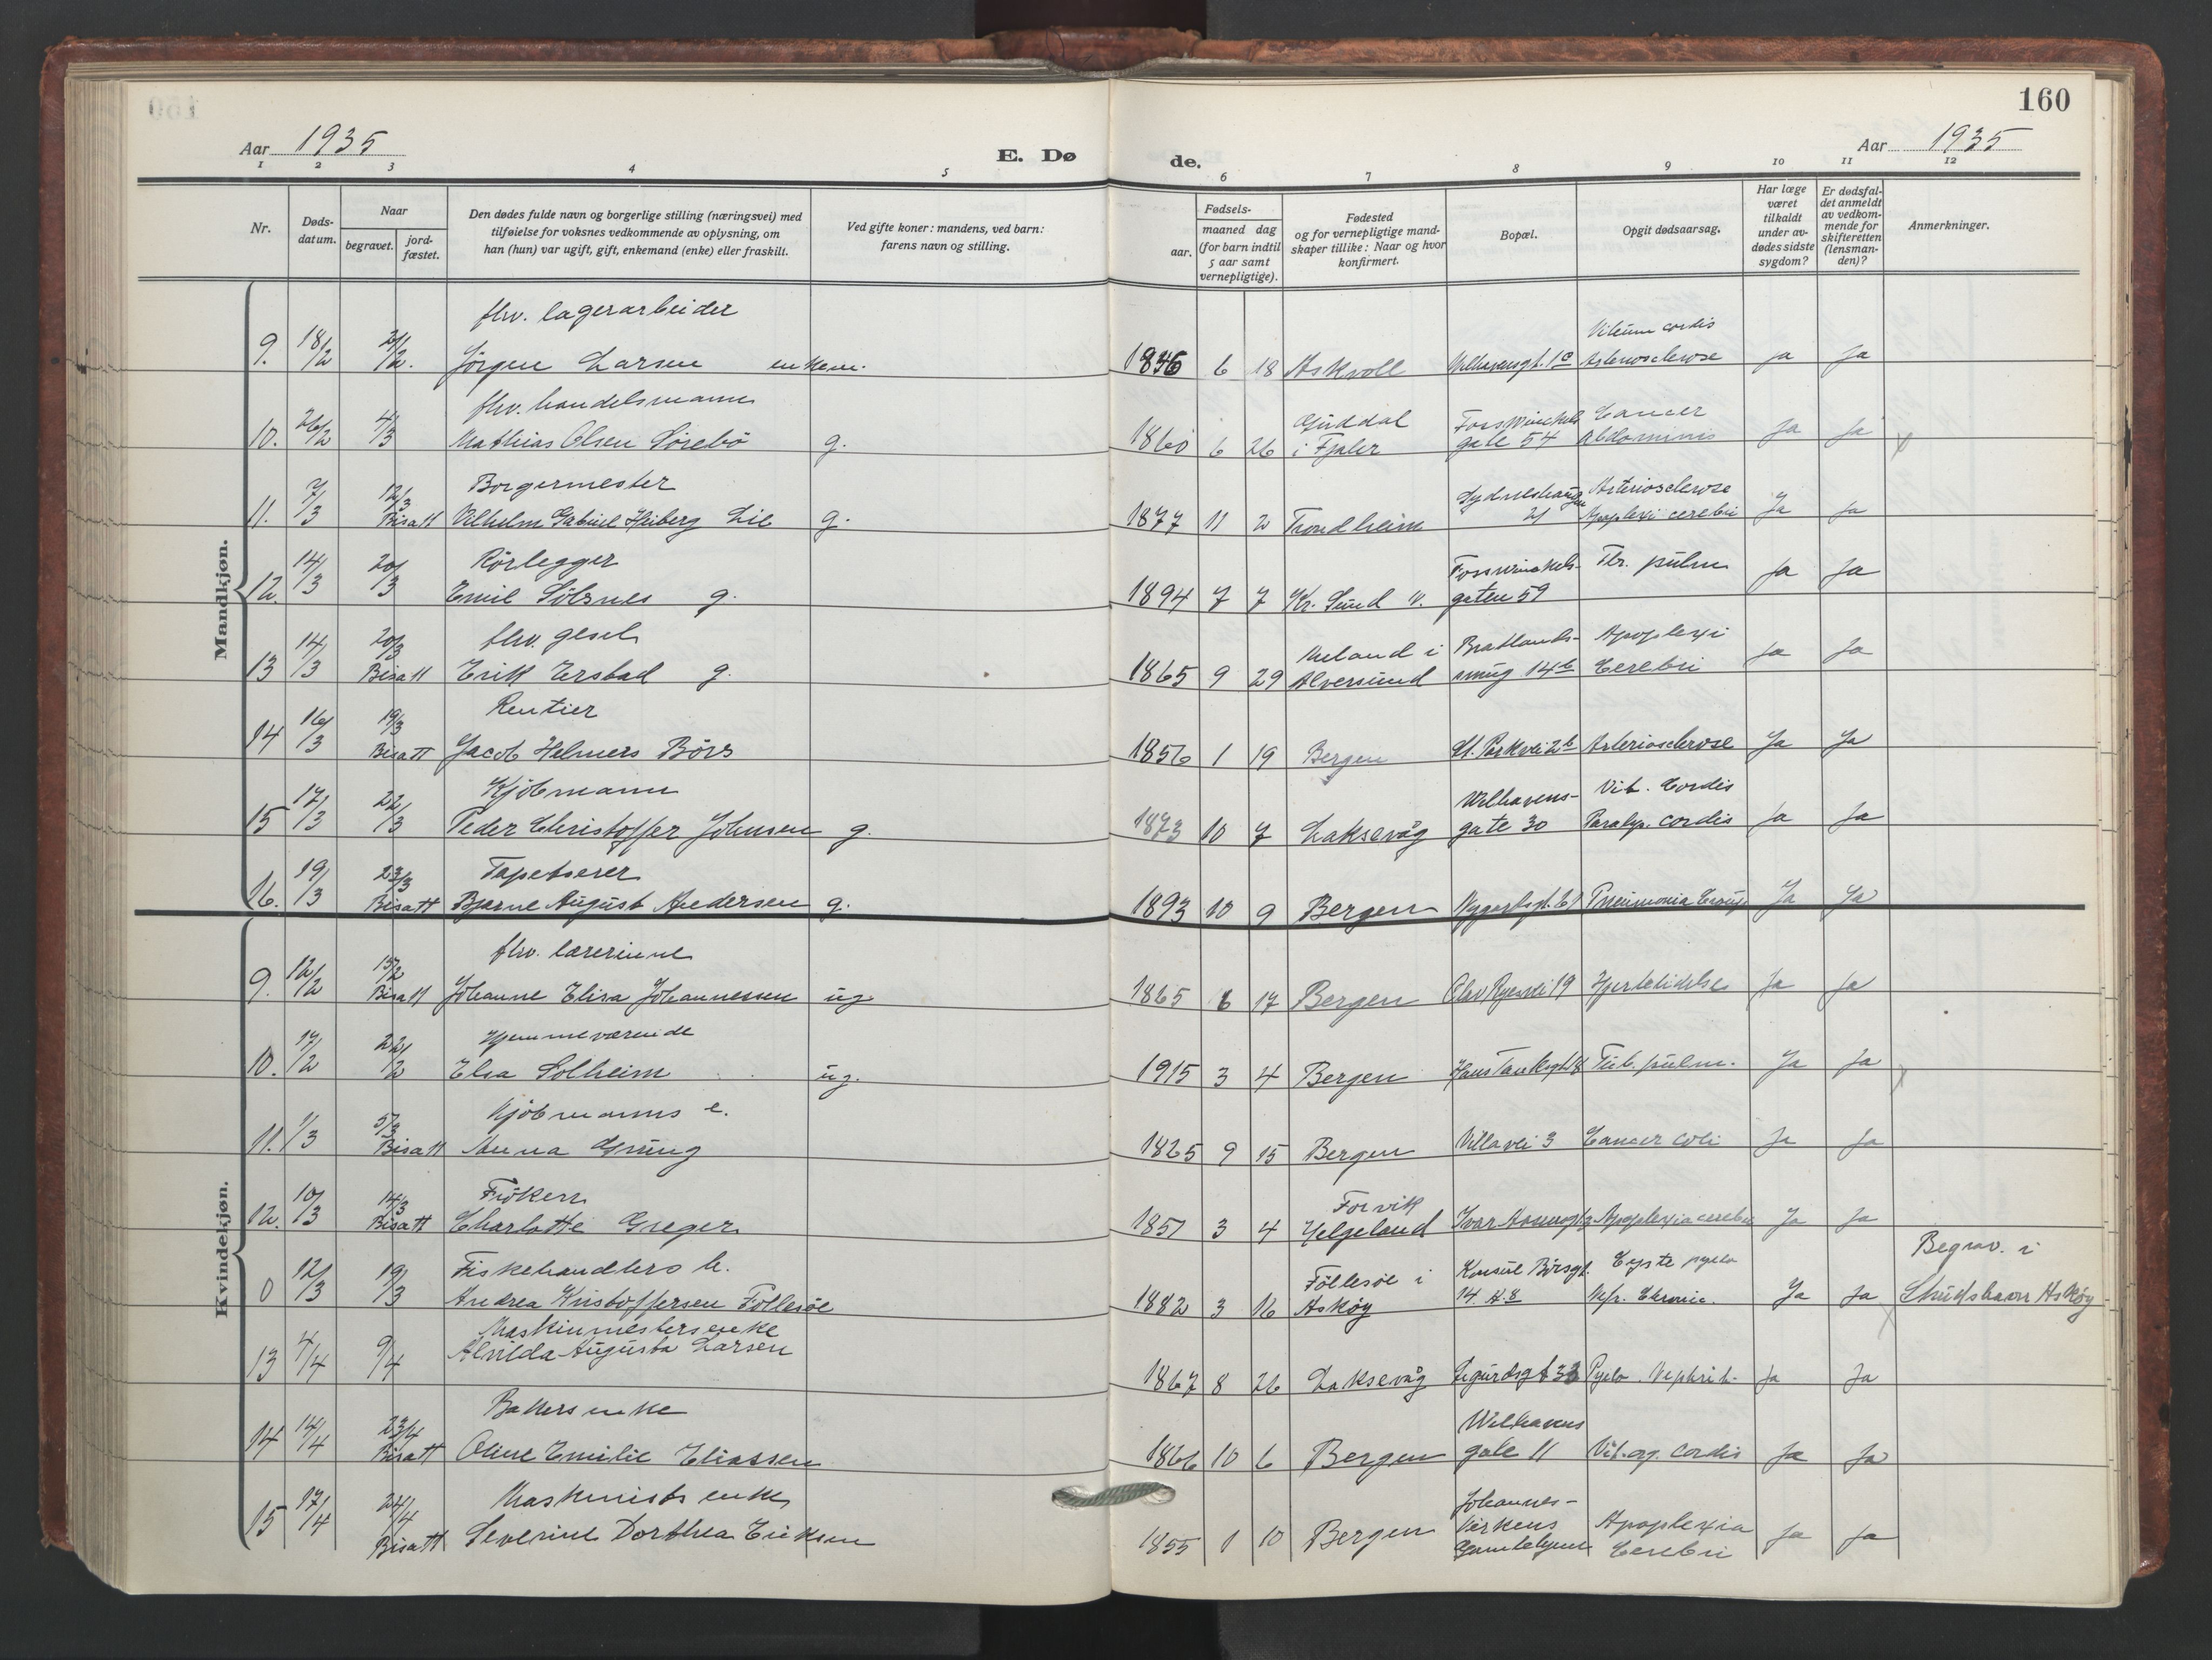 160
Aar 1935
E. Dø de.
Aar 1935
1 2 3 4 5 6 7 8 9 10 11 12
Nr.
Døds-datum.
Naar
begravet.
jord-fæstet.
Den dødes fulde navn og borgerlige stilling (næringsvei) med
tilføielse for voksnes vedkommende av oplysning, om
han (hun) var ugift, gift, enkemand (enke) eller fraskilt.
Ved gifte koner: mandens, ved barn:
farens navn og stilling.
Fødsels-
aar.
maaned dag
(for barn indtil
5 aar samt
vernepligtige).
Fødested
og for vernepligtige mand-
skaper tillike: Naar og hvor
konfirmert.
Bopæl.
Opgit dødsaarsag.
Har læge
været
tilkaldt
under av-
dødes sidste
sygdom?
Er dødsfal-
det anmeldt
av vedkom-
mende for
skifteretten
(lensman-
den)?
Anmerkninger.
Mandkjøn.
fhv. lagerarbeider Vitium cordis
9. 18/2 21/2. Jörgen Larsen enkem. 1836 6 18 Askvoll Arteriosclerose ja Ja
fhv. handelsmann Guddal Cancer
10. 26/2 4/3 Mathias Olsen Sörebö g. 1860 6 26 i Fjaler gate 54 abdominis Ja Ja x
Borgermester Sydneshaugen Arteriosclerose
11. 7/3 12/3 Bisatt Vilhelm Gabriel Heiberg Lie g. 1877 11 2 Trondheim 21 Apoplexi cerebri Ja Ja
Rörlegger Fosswinckels- Tb. pulm
12. 14/3 20/3 Emil Sölsnes g. 1894 7 7 Kr. Sund N. gaten 59 Ja Ja
fhv. gesel Meland i Bratlands- Apoplexi
13 14/3 20/3 Bisatt Erik Ersbad g. 1865 9 29 Alversund smug 14b Cerebri Ja Ja
Rentier
14 16/3 19/3 Bisatt Jacob Helmers Börs 1856 1 19 Bergen St. Parkvei 2b Arteriosclerose Ja Ja
Kjöbmann Welhavens- Vit. Cordis
15 17/3 22/3 Peder Christoffer Johnsen g. 1873 10 7 Laksevåg gate 30 Paralys. cordis Ja Ja
Tapetserer
16. 19/3 23/3 Bisatt Bjarne August Andersen g. 1893 10 9 Bergen Nygaardsgt. 61 Pneumonia Croup. Ja Ja
Kvindekjøn.
fhv. lærerinne
9. 12/2 15/2 Bisatt Johanne Elisa Johannessen ug 1865 6 17 Bergen Olav Ryesvei 19 Hjertelidelse Ja Ja
Hjemmeværende
10. 17/2 22/2 Elsa Solheim ug. 1915 3 4 Bergen Hans Tanksgt 8 Tub. pulm. Ja Ja x
Kjöbmanns e.
11. 1/3 5/3 Bisatt Anna Grung 1865 9 15 Bergen Villavei 3 Cancer coli Ja Ja
Fröken Forvik
12. 10/3 14/3 Bisatt Charlotte Greger 1851 3 4 Helgeland Ivar Aasensgt Apoplexia cerebri Ja Ja
Fiskehandlers h. Föllesöe i Konsul Börsgt. Cyste pyelo Begrav. i
0 12/3 19/3 Andrea Kristoffersen Föllesöe 1882 3 16 Asköy 14. A.8 Nefr. Chronic. Ja Ja Skudshavn Asköy
Maskinmesters enke
13 4/4 9/4 Alvilda Augusta Larsen 1867 8 26 Laksevåg Sigurdsgt 33 Pyelo. Nephrit. Ja Ja
Bakers enke Welhavens
14 14/4 23/4 Bisatt Oline Emilie Eliassen 1866 10 6 Bergen gate 11 Vit. org. Cordis Ja Ja
Maskinists enke Johannes-
15 17/4 24/4 Bisatt Severine Dorthea Eriksen 1855 1 10 Bergen kirkens Apoplexia Ja Ja
Gamlehjem Cerebri